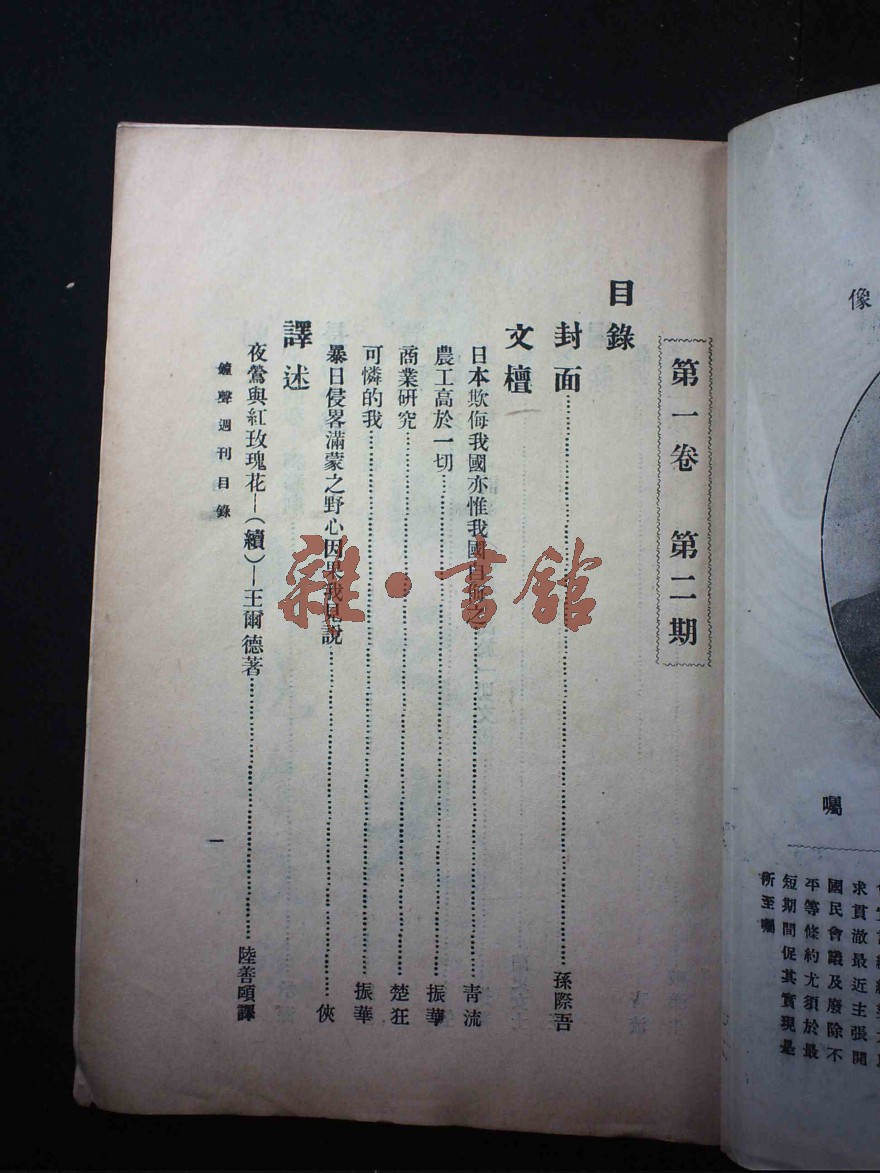 像
囑
求貫徹最近主張開
國民會議及廢除不
平等條約尤須於最
短期間促其實現是
所至囑
第一卷 第二期
目錄
封面………孫際吾
文檀
日本欺侮我國亦惟我國自之………青流
農工高於一切………振華
商業研究………楚狂
可憐的我………振華
暴日侵畧滿蒙之野心因果我見說………俠
譯述
夜鶯與紅玫瑰花—(續)—王爾德著………陸善頤譯
鐘聲週刊目錄
一
雜·書舘